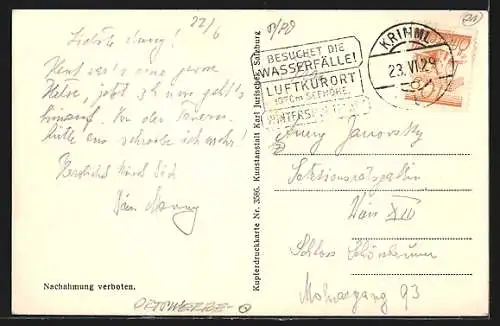 22/6
Liebste Anny!
Heut war's eine
Hetze, jetzt 3 h nun geht's
hinauf. In der Tauern-
hütte aus schreibe ich mehr!
Herzlichst küsst Dich
Dein
Nachahmung verboten.
Kupferdruckkarte Nr. 3586. Kunstanstalt Karl Jurischek, Salzburg
BESUCHET DIE
WASSERFÄLLE!
LUFTKURORT
1070m SEEHÖHE.
WINTERSPORT
KRIMML
23.VI.29
Anny Janovsky
Sektionsratsgattin
Wien XIII
Schloss Schönbrunn
93
ORTSWERBE